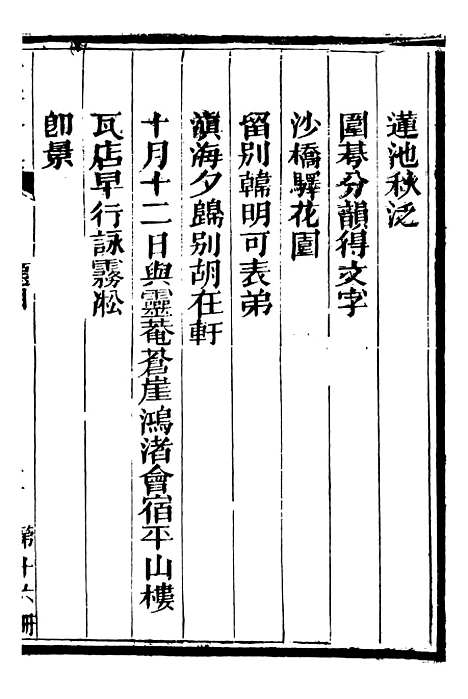 蓮池秋泛
圍碁分韻得文字
沙橋驛花園
留別韓明可表弟
滇海夕歸別胡在軒
十月十二日與靈菴蒼崖鴻渚會宿平山樓
瓦店早行詠霧凇
卽景
第十六冊